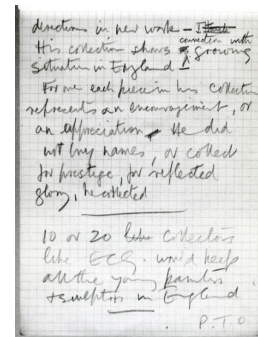 directions in new work – I think
His collection shows connection with growing
situation in England
For me each piece in his collection
represents an encouragement, or
an appreciation. He did
not buy names, or collect
for prestige, for reflected
glory, he collected
10 or 20 like collectors
like ECG. would keep
all the young painters
& sculptors in England
P.T.O